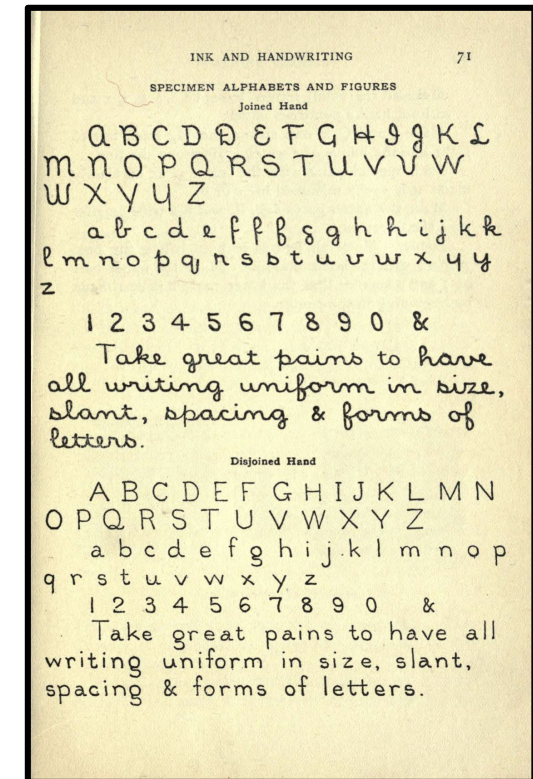 INK AND HANDWRITING 71
SPECIMEN ALPHABETS AND FIGURES
Joined Hand
A B C D D E F G H I J K L
M N O P Q R S T U V V W
W X Y Y Z
a b c d e f f f g g h h i j k k
l m n o p q r s s t u v w x y y
z
1 2 3 4 5 6 7 8 9 0 &
Take great pains to have
all writing uniform in size,
slant, spacing & forms of
letters.
Disjoined Hand
A B C D E F G H I J K L M N
O P Q R S T U V W X Y Z
a b c d e f g h i j k l m n o p
q r s t u v w x y z
1 2 3 4 5 6 7 8 9 0 &
Take great pains to have all
writing uniform in size, slant,
spacing & forms of letters.